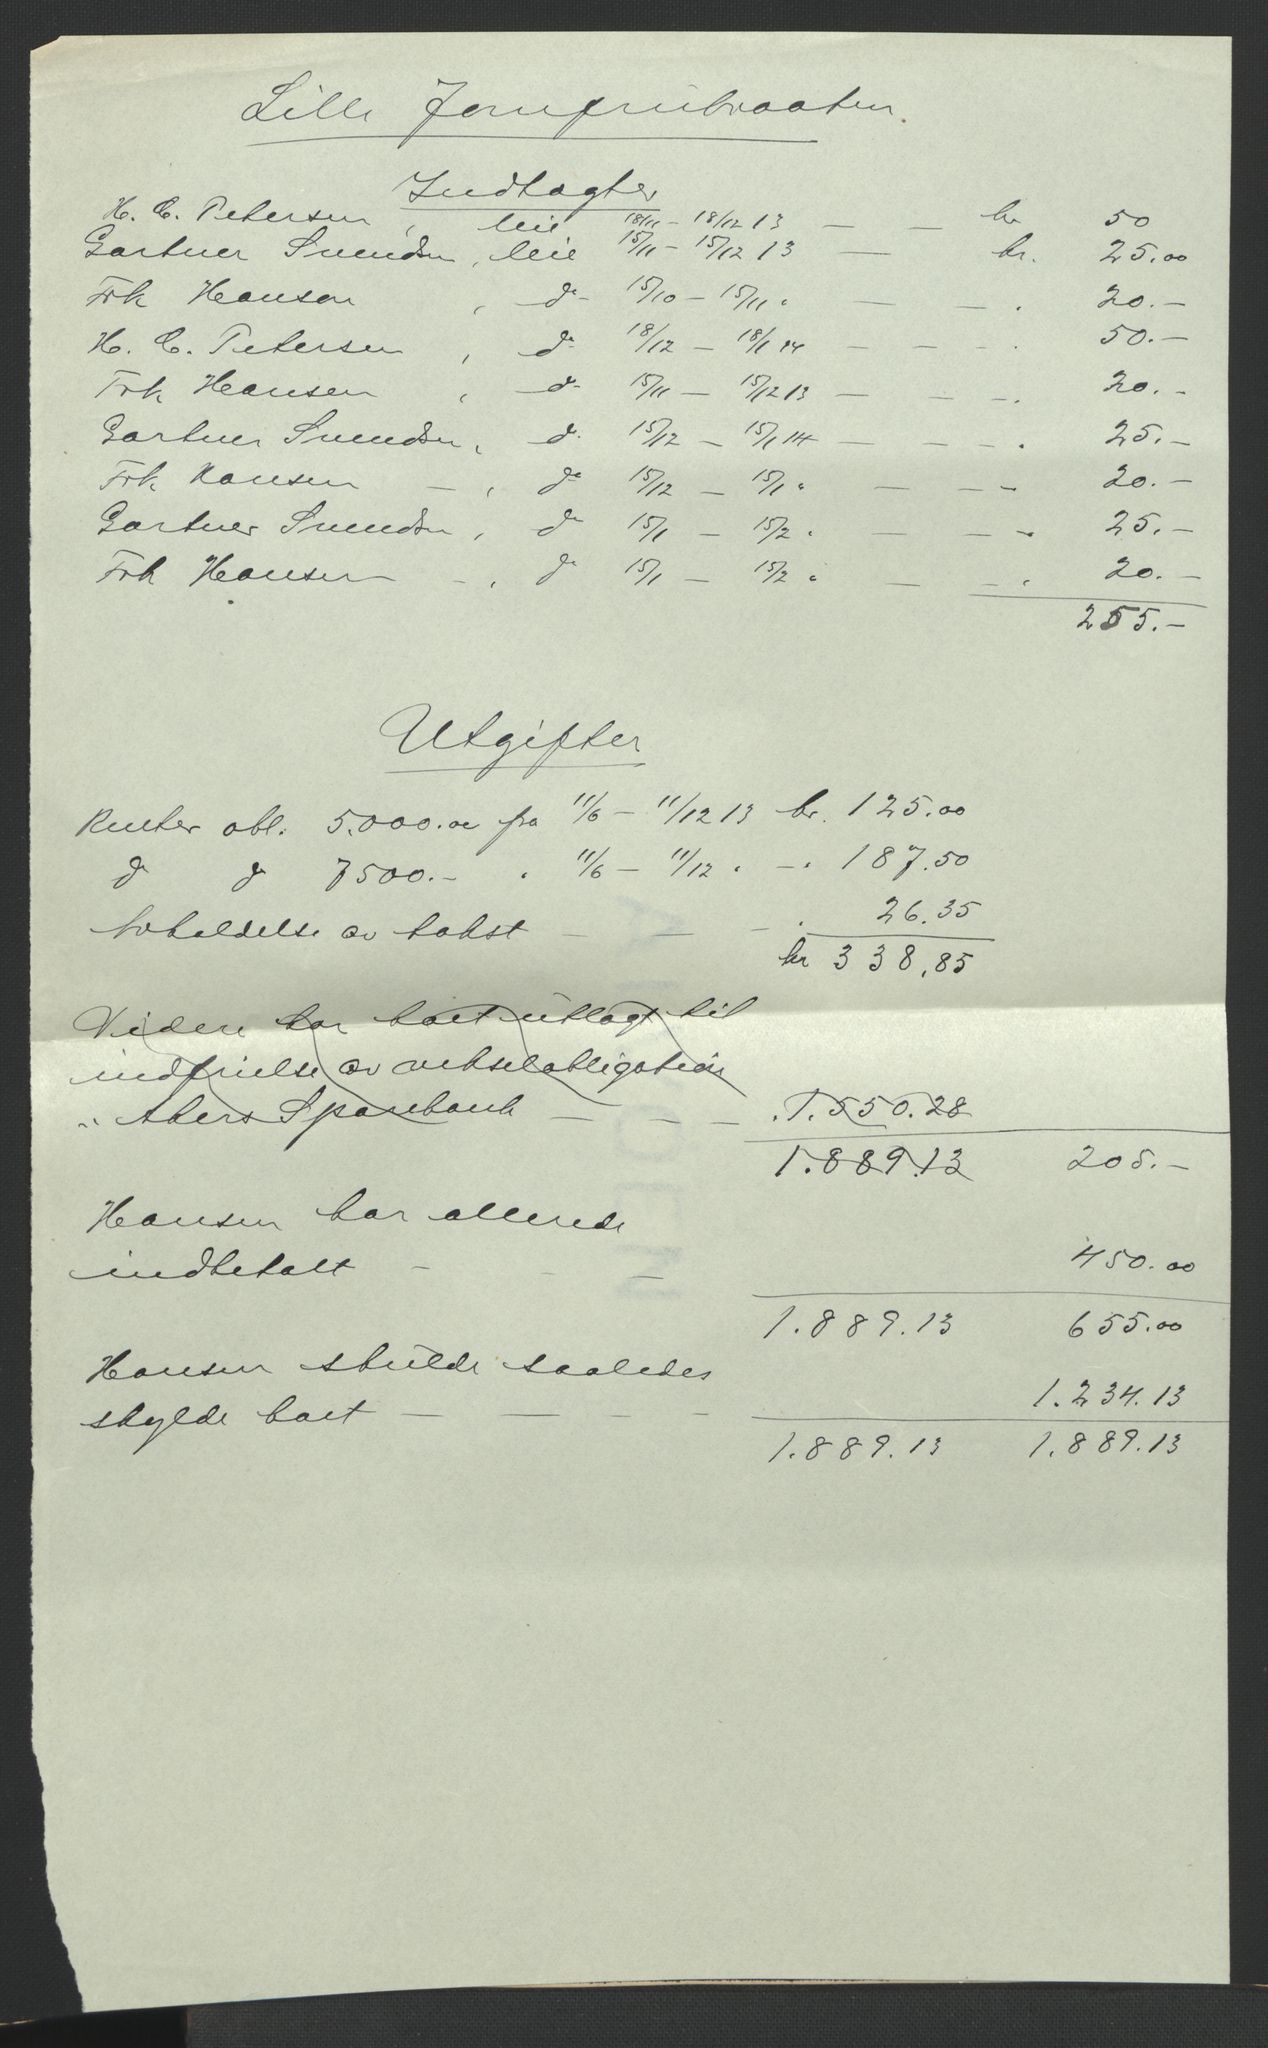 Lille Jomfrubraaten.
Indtægter
H. C. Petersen, leie 18/11 - 18/12 13 — — kr 50
Gartner Svendsen, leie 15/11 - 15/12 13 — kr. 25.00
Frk Hansen , do 15/10 - 15/11 " — — . 20.-
H. C. Petersen , do 18/12 - 18/1 14 — — — . 50.-
Frk Hansen , do 15/11 - 15/12 13 — — — . 20.-
Gartner Svendsen, do 15/12 - 15/1 14 — — — . 25.-
Frk Hansen — , do 15/12 - 15/1 " — — — 20.-
Gartner Svendsen, do 15/1 - 15/2 " — — — 25.-
Frk Hansen — , do 15/1 - 15/2 " — — . 20.-
255.-
Utgifter
Renter obl. 5.000.00 fra 11/6 - 11/12 13 kr. 125.00
do do 7500.- " 11/6 - 11/12 " - " 187.50
avholdelse av takst — — — . 26.35
kr 338,85
Videre har utlagt til
indfrielse av vekselobligation
i Akers Sparebank — — — . 1.550.28
1.889.13 205.-
Hansen har allerede
indbetalt — — — 450.00
1.889.13 655.00
Hansen skulde saaledes
skylde — — — — 1.234.13
1.889.13 1.889.13